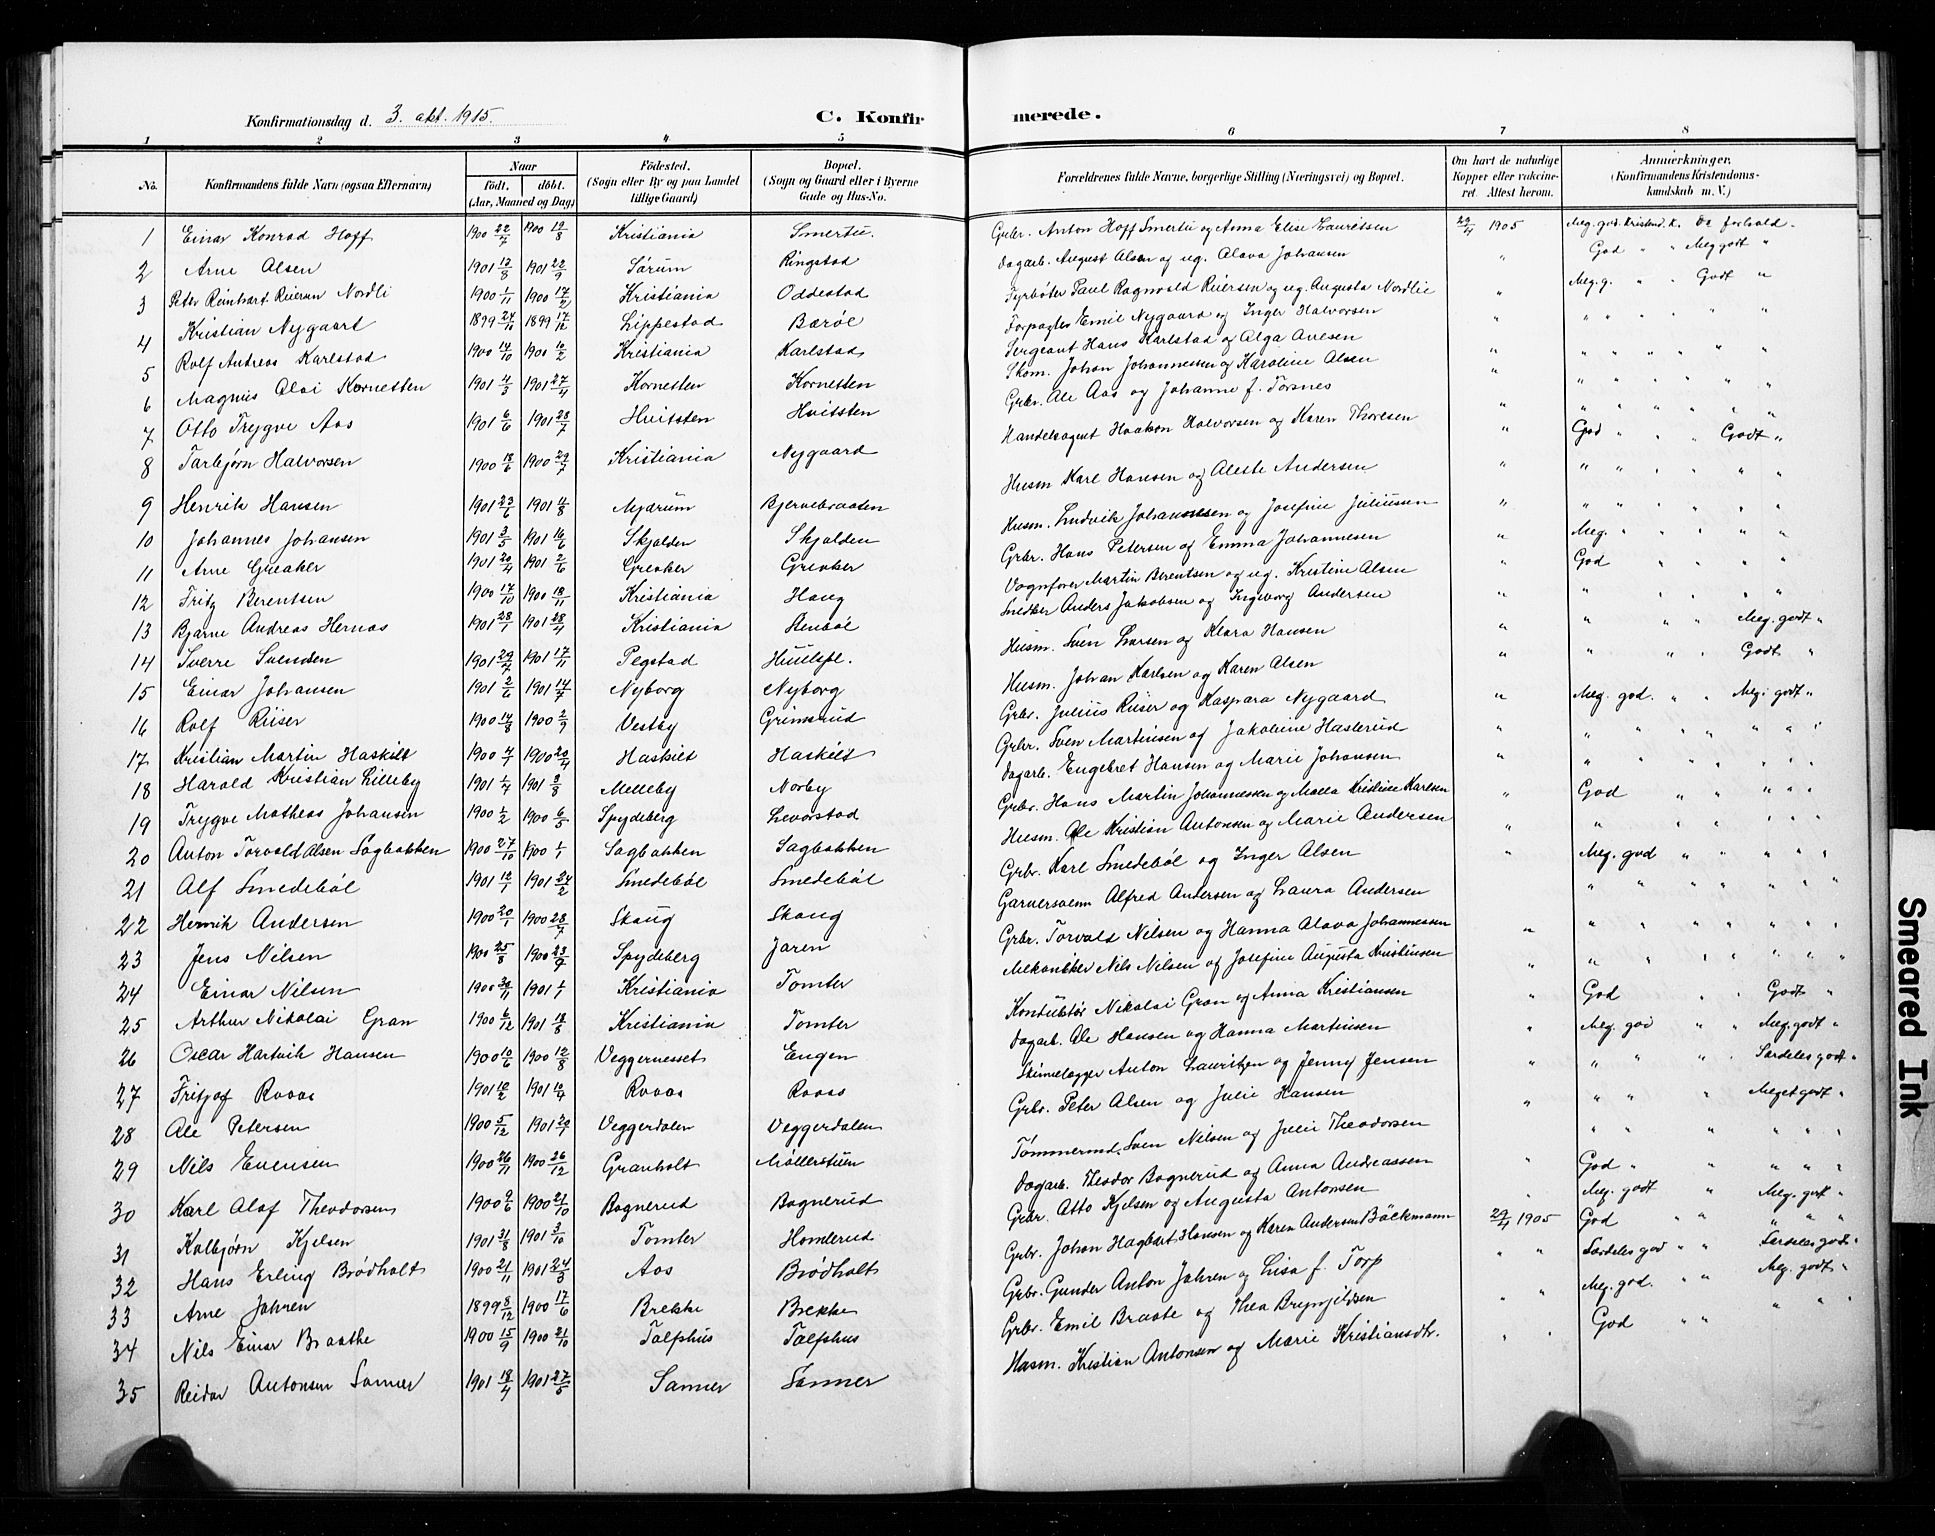 Konfirmationsdag d. 3. okt. 1915.
C. Konfirmerede.
1 2 3 4 5 6 7 8
No.
Konfirmandens fulde Navn (ogsaa Efternavn)
Naar
født, døbt.
(Aar, Maaned og Dag)
Fødested.
(Sogn eller By og paa Landet tillige Gaard)
Bopæl.
(Sogn og Gaard eller i Byerne Gade og Hus-No.
Forældrenes fulde Navne, borgerlige Stilling (Næringsvei) og Bopæl.
Om havt de naturlige Kopper eller vaccineret. Attest herom.
Anmerkninger.
(Konfirmandens Kristendomskundskab m. V.)
1 Einar Konrad Hoff 1900 22/7 1900 19/8 Kristiania Smertu. Grbr. Anton Hoff Smertu og Anna Elise Lauretsen 29/4 1905 Meg. god Kristend.k. Og forhold.
2 Arne Olsen 1901 13/8 1901 22/9 Sørum Ringstad Dagarb. August Olsen og ug. Olava Johansen " God " " Meg godt "
3 Peter Reinhart Reiersen Nordli 1900 1/11 1900 17/2 Kristiania Oddestad Fyrbøter Paul Ragnvald Reiersen og ug. Augusta Nordlie " Meg. g. " " Godt "
4 Kristian Nygaart 1899 24/10 1899 17/12 Lippestad Bærøe Forpagter Emil Nygaard og Inger Halvorsen "
5 Rolf Andreas Karlstad 1900 14/10 1900 10/2 Kristiania Karlstad Sergeant Hans Karlstad og Olga Ovesen "
6 Magnus Olai Kornetten 1901 4/3 1901 27/4 Kornetten Kornetten Skom. Johan Johannessen og Karoline Olsen "
7 Otto Trygve Aas 1901 6/6 1901 28/7 Hvitsten Hvitsten Grbr. Ole Aas og Johanne f. Torsnes "
8 Torbjørn Halvorsen 1900 18/6 1900 29/7 Kristiania Nygaard Handelsagent Haakon Halvorsen og Karen Thoresen " God " " " Godt "
9 Henrik Hansen 1901 23/6 1901 4/8 Mjærum Bjervebraaten Husm Karl Hansen og Oleste Andersen "
10 Johannes Johansen 1901 3/5 1901 16/6 Skjolden Skjolden Husm. Ludvik Johannesen og Josefine Juliussen "
11 Arne Greaker 1901 20/4 1901 2/6 Greaker Greaker Grbr. Hans Petersen og Emma Johannesen " Meg. " " " "
12 Fritz Berentsen 1900 17/10 1900 18/11 Kristiania Haug Vognfører Martin Berentsen og ug. Kristine Olsen " God " " " "
13 Bjarne Andreas Hernæs 1901 28/1 1901 28/4 Kristiania Stenbøl Snedker Anders Jakobsen og Ingeborg Andersen "
14 Sverre Svendsen 1901 29/7 1901 17/11 Pegstad Husm. Sven Larsen og Klara Hansen " " " " Meg. godt "
15 Einar Johansen 1901 2/6 1901 14/7 Nyborg Nyborg Husm. Johan Karlsen og Karen Olsen " " " " Godt "
16 Rolf Riiser 1900 14/8 1900 2/9 Vestby Grimsrud Grbr. Julius Riiser og Kaspara Nygaard " Meg. god. " " Meg. godt "
17 Kristian Martin Haskilt 1900 4/7 1900 20/4 Haskilt Haskilt Grbr. Sven Martinsen og Jakobine Haslerud "
18 Harald Kristian Lilleby 1901 1/4 1901 8/8 Melleby Norby Dagarb. Engebret Hansen og Marie Johansen "
19 Trygve Matheas Johansen 1900 1/2 1900 6/5 Spydeberg Levorstad Grbr. Hans Martin Johannessen og Maella Kristine Karlsen " God " " " "
20 Anton Torvald Olsen Sagbakken 1900 27/10 1900 1/1 Sagbakken Sagbakken Husm. Ole Kristian Antonsen og Marie Andersen "
21 Alf Smedebøl 1901 12/1 1901 24/2 Smedebøl Smedebøl Grbr. Karl Smedebøl og Inger Olsen " Meg. god " " " "
22 Henrik Andersen 1900 20/1 1900 28/7 Skaug Skaug Garversvenn Alfred Andersen og Laura Andersen
23 Jens Nilsen 1900 25/8 1900 23/9 Spydeberg Jaren Grbr. Torvald Nilsen og Hanna Olava Johannessen "
24 Einar Nilsen 1900 30/11 1901 1/1 Kristiania Tomter Mekaniker Nils Nilsen og Josefine Augusta Kristiansen "
25 Arthur Nikolai Gran 1900 6/12 1901 18/8 Kristiania Tomter Nikolai Gran og Anna Kristiansen " God " " Godt "
26 Oscar Hartvik Hansen 1900 10/6 1900 12/8 Veggernesset Engen Dagarb. Ole Hansen og Hanna Martinsen " Meg. god " " Meg. godt "
27 Fritjof Raaas 1901 10/2 1901 10/4 Raaas Raaas Skinnelægger Anton Lauritzen og Jenny Jensen " " " " Særdeles godt "
28 Ole Petersen 1900 5/12 1901 20/1 Veggerdalen Veggerdalen Grbr. Peter Olsen og Julie Hansen " " " " Meget godt "
29 Nils Evensen 1900 26/11 1900 26/12 Granholt Møllerstuen Tømmermd. Sven Nilsen og Julie Theodorsen
30 Karl Olaf Theodorsen 1900 2/6 1900 21/10 Bognerud Bognerud Dagarb. Theodor Bognerud og Anna Andreassen " God " " " "
31 Kolbjørn Kjelsen 1901 31/8 1901 3/10 Tomter Homlerud Grbr. Otto Kjelsen og Augusta Antonsen " Meg. godt " Meg. godt "
32 Hans Erling Brødholt 1900 21/11 1901 24/3 Aas Brødholt Grbr. Johan Hagbart Hansen og Karen Andersen Bäckmann 29/4 1905 God " " " "
33 Arne Jahren 1899 8/12 1900 17/6 Brekke Brekke Grbr. Gunder Anton Jahren og Lisa f. Torp " " Særdeles god " " Særdeles godt "
34 Nils Einar Braathe 1900 15/9 1900 21/10 Talphus Talphus Grbr. Emil Braate og Thea Brynjildsen " " Meg. god. " " Meg. godt "
35 Reidar Antonsen Sanner 1901 18/4 1901 27/5 Sanner Sanner Husm. Kristian Antonsen og Marie Kristiansdtr. " " God " " " "
Smeared Ink